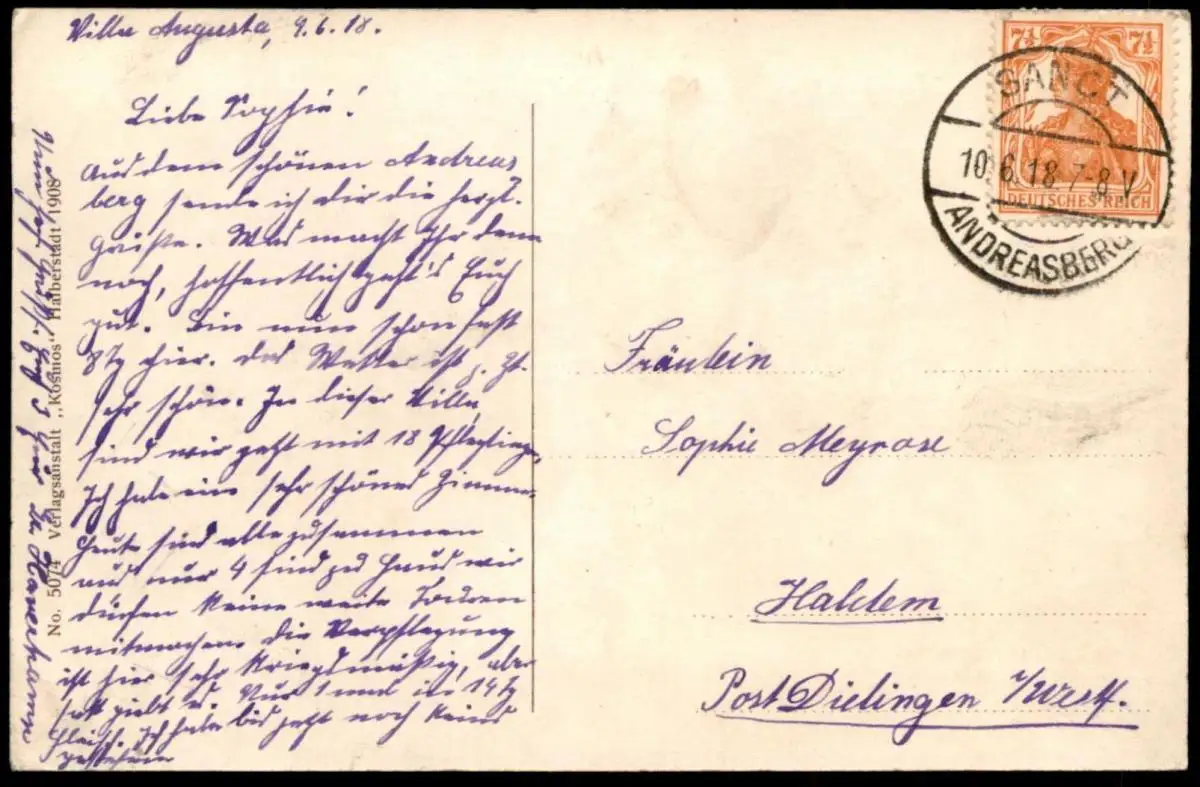 Villa Augusta, 9.6.18.
Liebe Sophie!
Aus dem schönen Andreas
berg sende ich dir die herzl.
Grüße. Was macht Ihr denn
noch, hoffentlich geht's Euch
gut. Bin nun schon fast
8 Tg hier. Das Wetter ist z. Zt.
sehr schön. In dieser Villa
sind wir jetzt mit 18 Pfleglinge,
Ich habe ein sehr schönes Zimmer
heute sind alle zusammen
aus nur 4 sind zu Haus wir
dürfen keine weite Touren
mitmachen. die Verpflegung
ist hier sehr kriegsmäßig, aber
satt giebt es. Nur 1 mal in 14 Tg
Fleisch. Ich habe bis jetzt noch keins
gesehen
No. 5074 Verlagsanstalt „Kosmos" Halberstadt 1908
7½ 7½
DEUTSCHES REICH
SANCT
10.6.18.7-8 V
ANDREASBERG
Fräulein
Sophie Meyrose
Haldem
Post Dielingen i/Westf.